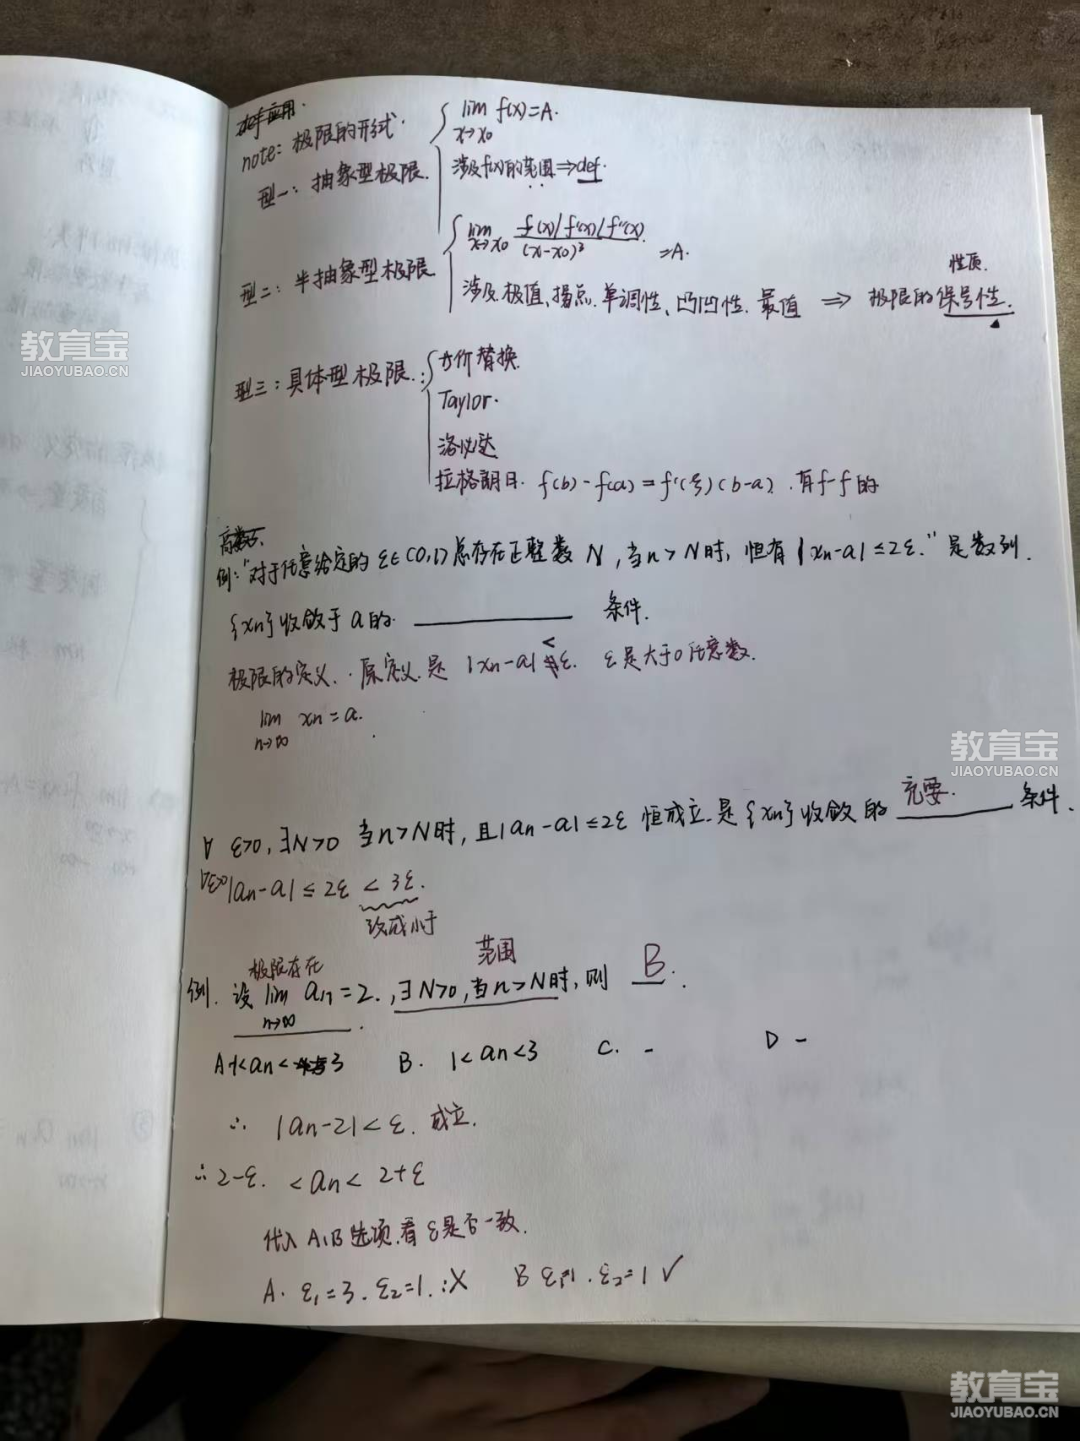 def应用.
note: 极限的形式.
型一: 抽象型极限. { lim f(x)=A.
x→x0
涉及f(x)的范围⇒def.
型二: 半抽象型极限 { lim f(x)/f'(x)/f''(x)
x→x0 (x-x0)² =A.
性质.
涉及极值、拐点、单调性、凹凸性、最值 ⇒ 极限的保号性.
型三: 具体型极限. { 等价替换.
Taylor.
洛必达
拉格朗日. f(b)-f(a)=f'(ξ)(b-a). 有f-f的
例: "对于任意给定的 ε∈(0,1)总存在正整数 N, 当n>N时, 恒有|xn-a|≤2ε." 是数列.
{xn}收敛于a的 ______ 条件.
极限的定义. 原定义是 |xn-a|<ε. ε是大于0任意数.
lim xn=a.
n→∞
∀ ε>0, ∃N>0 当n>N时, 且|an-a|≤2ε 恒成立是{xn}收敛的 充要. 条件.
∀ε>0 |an-a|≤2ε<3ε.
改成小于
极限存在 范围
例. 设 lim an=2., ∃N>0, 当n>N时, 则 B.
n→∞
A -1<an<3 B. 1<an<3 C. - D -
∴ |an-2|<ε. 成立.
∴ 2-ε. <an<2+ε
代入A、B选项, 看ε是否一致.
A. ε1=3. ε2=1. ∴X B ε1=1. ε2=1 ✓
教育宝
JIAOYUBAO.CN
教育宝
JIAOYUBAO.CN
教育宝
JIAOYUBAO.CN